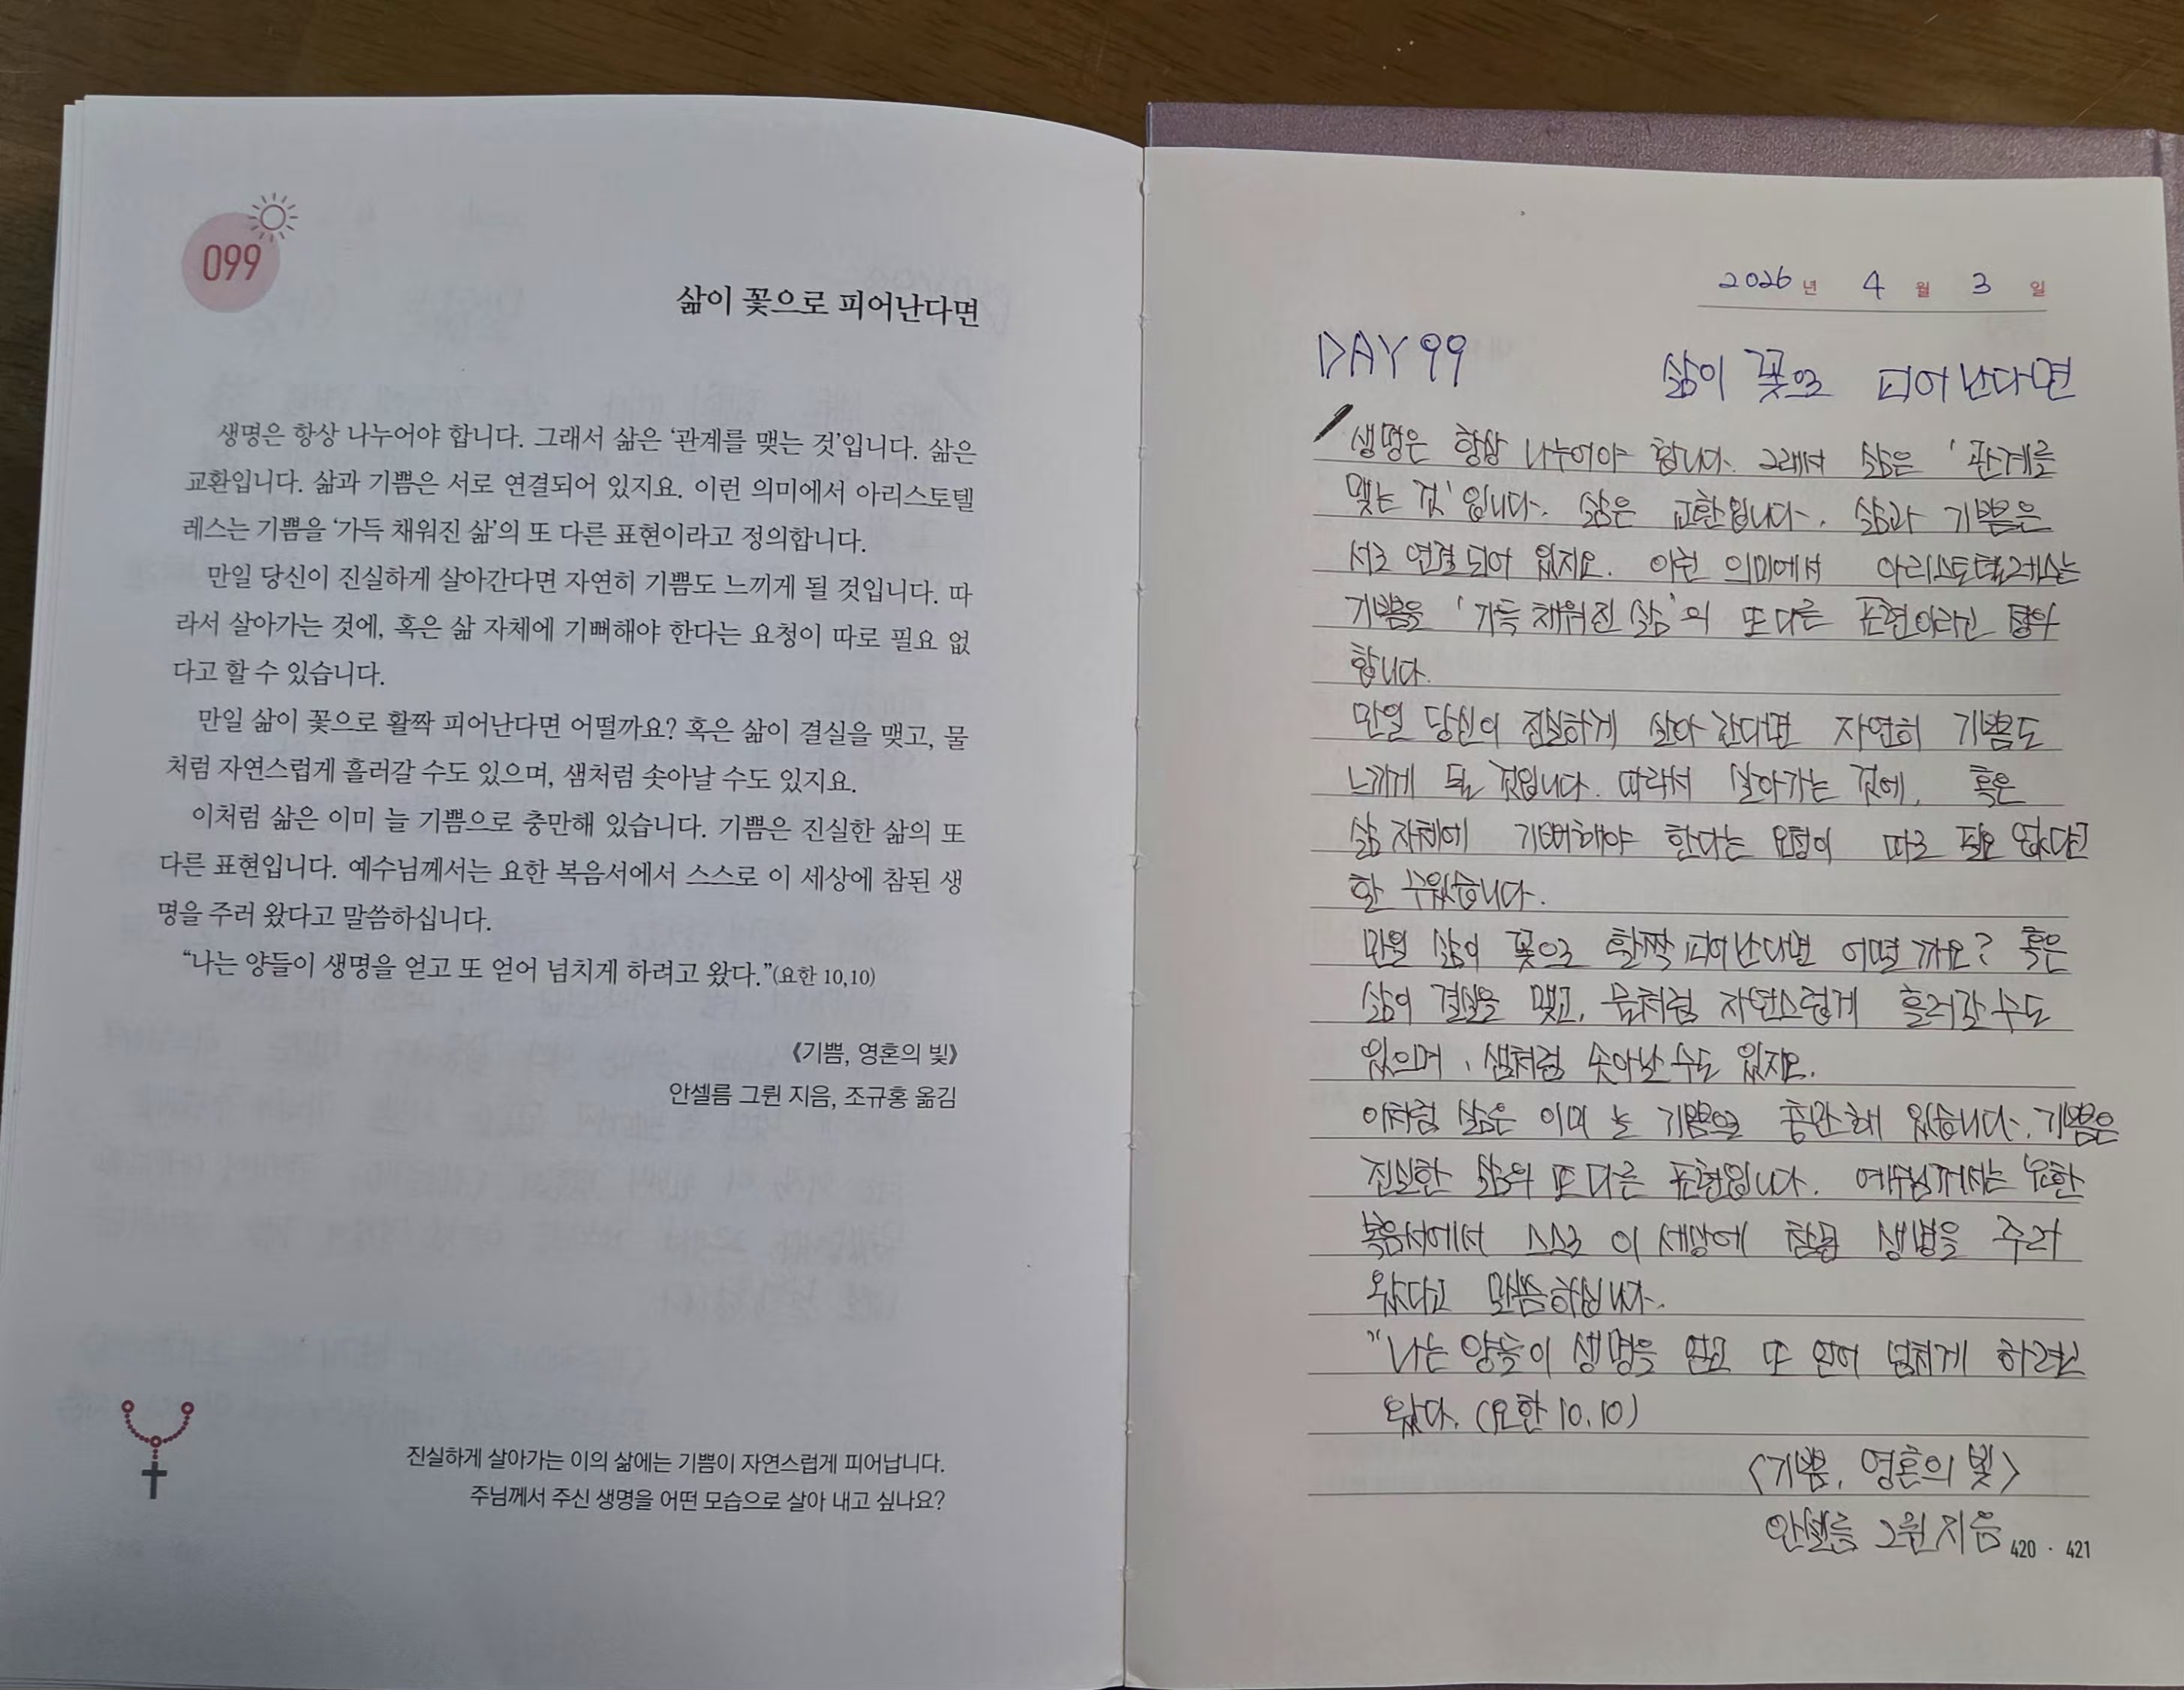 099
삶이 꽃으로 피어난다면
생명은 항상 나누어야 합니다. 그래서 삶은 ‘관계를 맺는 것’입니다. 삶은
교환입니다. 삶과 기쁨은 서로 연결되어 있지요. 이런 의미에서 아리스토텔
레스는 기쁨을 ‘가득 채워진 삶’의 또 다른 표현이라고 정의합니다.
만일 당신이 진실하게 살아간다면 자연히 기쁨도 느끼게 될 것입니다. 따
라서 살아가는 것에, 혹은 삶 자체에 기뻐해야 한다는 요청이 따로 필요 없
다고 할 수 있습니다.
만일 삶이 꽃으로 활짝 피어난다면 어떨까요? 혹은 삶이 결실을 맺고, 물
처럼 자연스럽게 흘러갈 수도 있으며, 샘처럼 솟아날 수도 있지요.
이처럼 삶은 이미 늘 기쁨으로 충만해 있습니다. 기쁨은 진실한 삶의 또
다른 표현입니다. 예수님께서는 요한 복음서에서 스스로 이 세상에 참된 생
명을 주러 왔다고 말씀하십니다.
“나는 양들이 생명을 얻고 또 얻어 넘치게 하려고 왔다.”(요한 10,10)
《기쁨, 영혼의 빛》
안셀름 그륀 지음, 조규홍 옮김
진실하게 살아가는 이의 삶에는 기쁨이 자연스럽게 피어납니다.
주님께서 주신 생명을 어떤 모습으로 살아 내고 싶나요?
2026년 4월 3일
DAY 99 삶이 꽃으로 피어난다면
생명은 항상 나누어야 합니다. 그래서 삶은 '관계를
맺는 것'입니다. 삶은 교환입니다. 삶과 기쁨은
서로 연결되어 있지요. 이런 의미에서 아리스토텔레스는
기쁨을 '가득 채워진 삶'의 또 다른 표현이라고 정의
합니다.
만일 당신이 진실하게 살아간다면 자연히 기쁨도
느끼게 될 것입니다. 따라서 살아가는 것에, 혹은
삶 자체에 기뻐해야 한다는 요청이 따로 필요 없다고
할 수 있습니다.
만일 삶이 꽃으로 활짝 피어난다면 어떨까요? 혹은
삶이 결실을 맺고, 물처럼 자연스럽게 흘러갈 수도
있으며, 샘처럼 솟아날 수도 있지요.
이처럼 삶은 이미 늘 기쁨으로 충만해 있습니다. 기쁨은
진실한 삶의 또 다른 표현입니다. 예수님께서는 요한
복음서에서 스스로 이 세상에 참된 생명을 주러
왔다고 말씀하십니다.
"나는 양들이 생명을 얻고 또 얻어 넘치게 하려고
왔다. (요한 10,10)
<기쁨, 영혼의 빛>
안셀름 그륀 지음
420 · 421